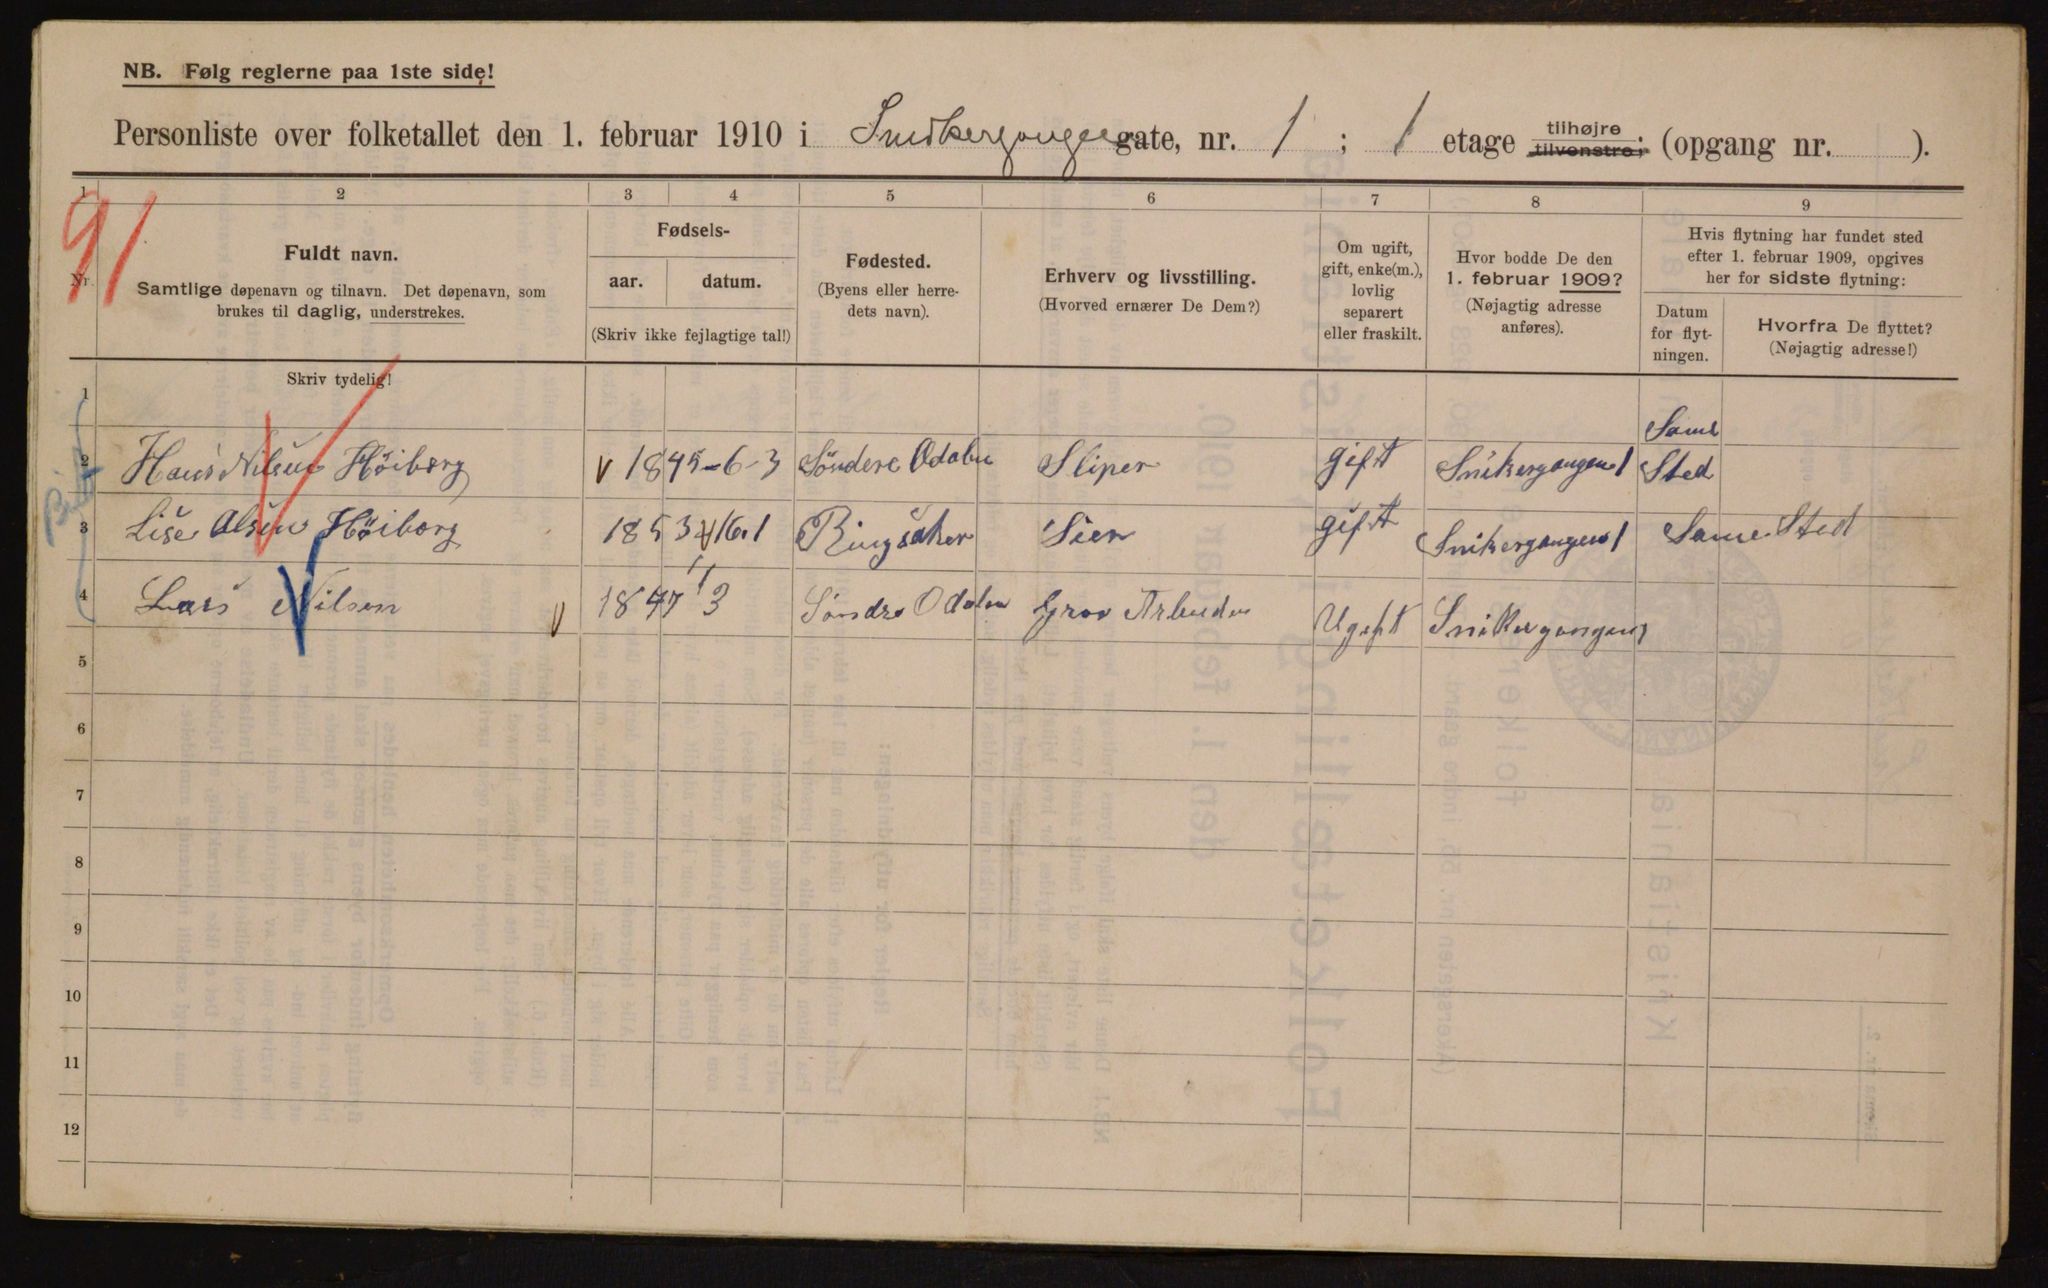 NB. Følg reglerne paa 1ste side!
Personliste over folketallet den 1. februar 1910 i Snedkergangen gate, nr. 1 ; 1 etage tilhøjre tilvenstre; (opgang nr. ).
1 2 3 4 5 6 7 8 9
91
Nr.
Fuldt navn.
Samtlige døpenavn og tilnavn. Det døpenavn, som
brukes til daglig, understrekes.
Skriv tydelig!
Fødsels-
aar. datum.
(Skriv ikke fejlagtige tal!)
Fødested.
(Byens eller herre-
dets navn).
Erhverv og livsstilling.
(Hvorved ernærer De Dem?)
Om ugift,
gift, enke(m.),
lovlig
separert
eller fraskilt.
Hvor bodde De den
1. februar 1909?
(Nøjagtig adresse
anføres).
Hvis flytning har fundet sted
efter 1. februar 1909, opgives
her for sidste flytning:
Datum
for flyt-
ningen.
Hvorfra De flyttet?
(Nøjagtig adresse!)
1
2 Hans Nilsen Höiborg v 1845-6-3 Söndere Odalen Sliper gift Snikergangen 1 Same Sted
3 Lise Olsen Höiborg 1853 v 16.1 Ringsaker Sier gift Snikergangen 1 Same Sted
4 Lars Nilsen v 1847 11/3 Söndre Odalen Grov Arbeider Ugift Snikergangen 1
5
6
7
8
9
10
11
12